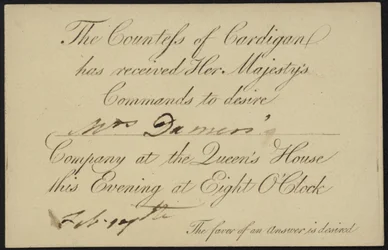 The Countess of Cardigan
has received Her Majesty's
Commands to desire
Mrs Damer's
Company at the Queen's House
this Evening at Eight O'Clock
The favor of an Answer is desired